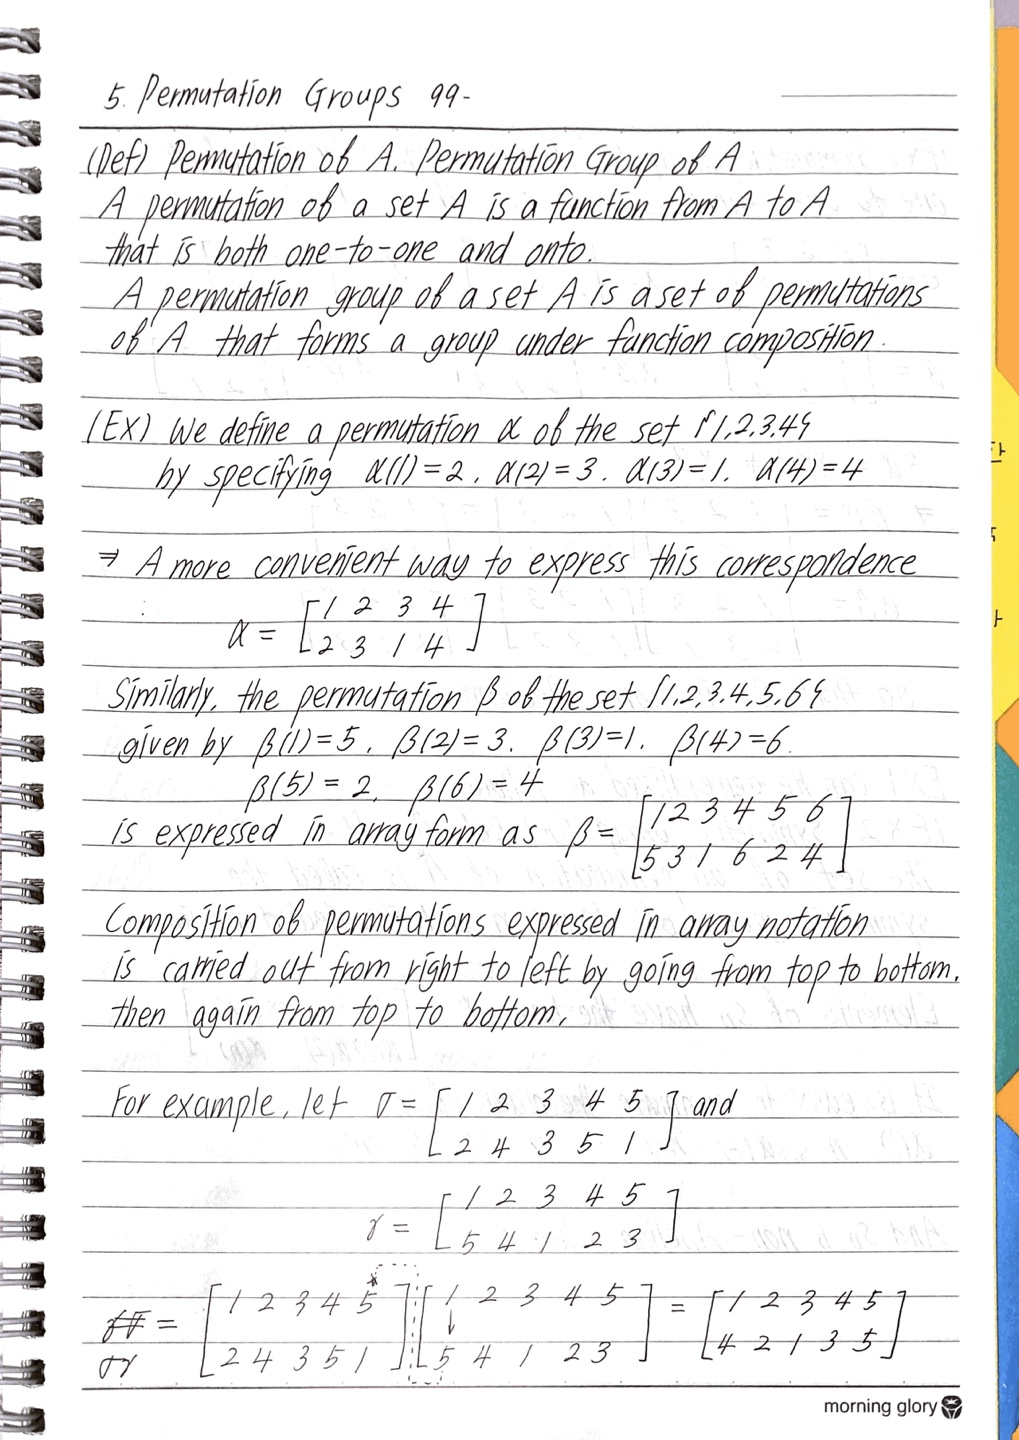 5. Permutation Groups 99-
(Def) Permutation of A. Permutation Group of A
A permutation of a set A is a function from A to A
that is both one-to-one and onto.
A permutation group of a set A is a set of permutations
of A that forms a group under function composition.
(EX) We define a permutation α of the set {1,2,3,4}
by specifying α(1)=2, α(2)=3. α(3)=1. α(4)=4
⇒ A more convenient way to express this correspondence
:
α = [1 2 3 4
2 3 1 4]
Similarly, the permutation β of the set {1,2,3,4,5,6}
given by β(1)=5, β(2)=3. β(3)=1. β(4)=6.
β(5)=2, β(6)=4
is expressed in array form as β = [1 2 3 4 5 6
5 3 1 6 2 4]
Composition of permutations expressed in array notation
is carried out from right to left by going from top to bottom,
then again from top to bottom.
For example, let σ = [1 2 3 4 5
2 4 3 5 1] and
γ = [1 2 3 4 5
5 4 1 2 3]
σγ = [1 2 3 4 5
2 4 3 5 1] [1 2 3 4 5
5 4 1 2 3] = [1 2 3 4 5
4 2 1 3 5]
morning glory